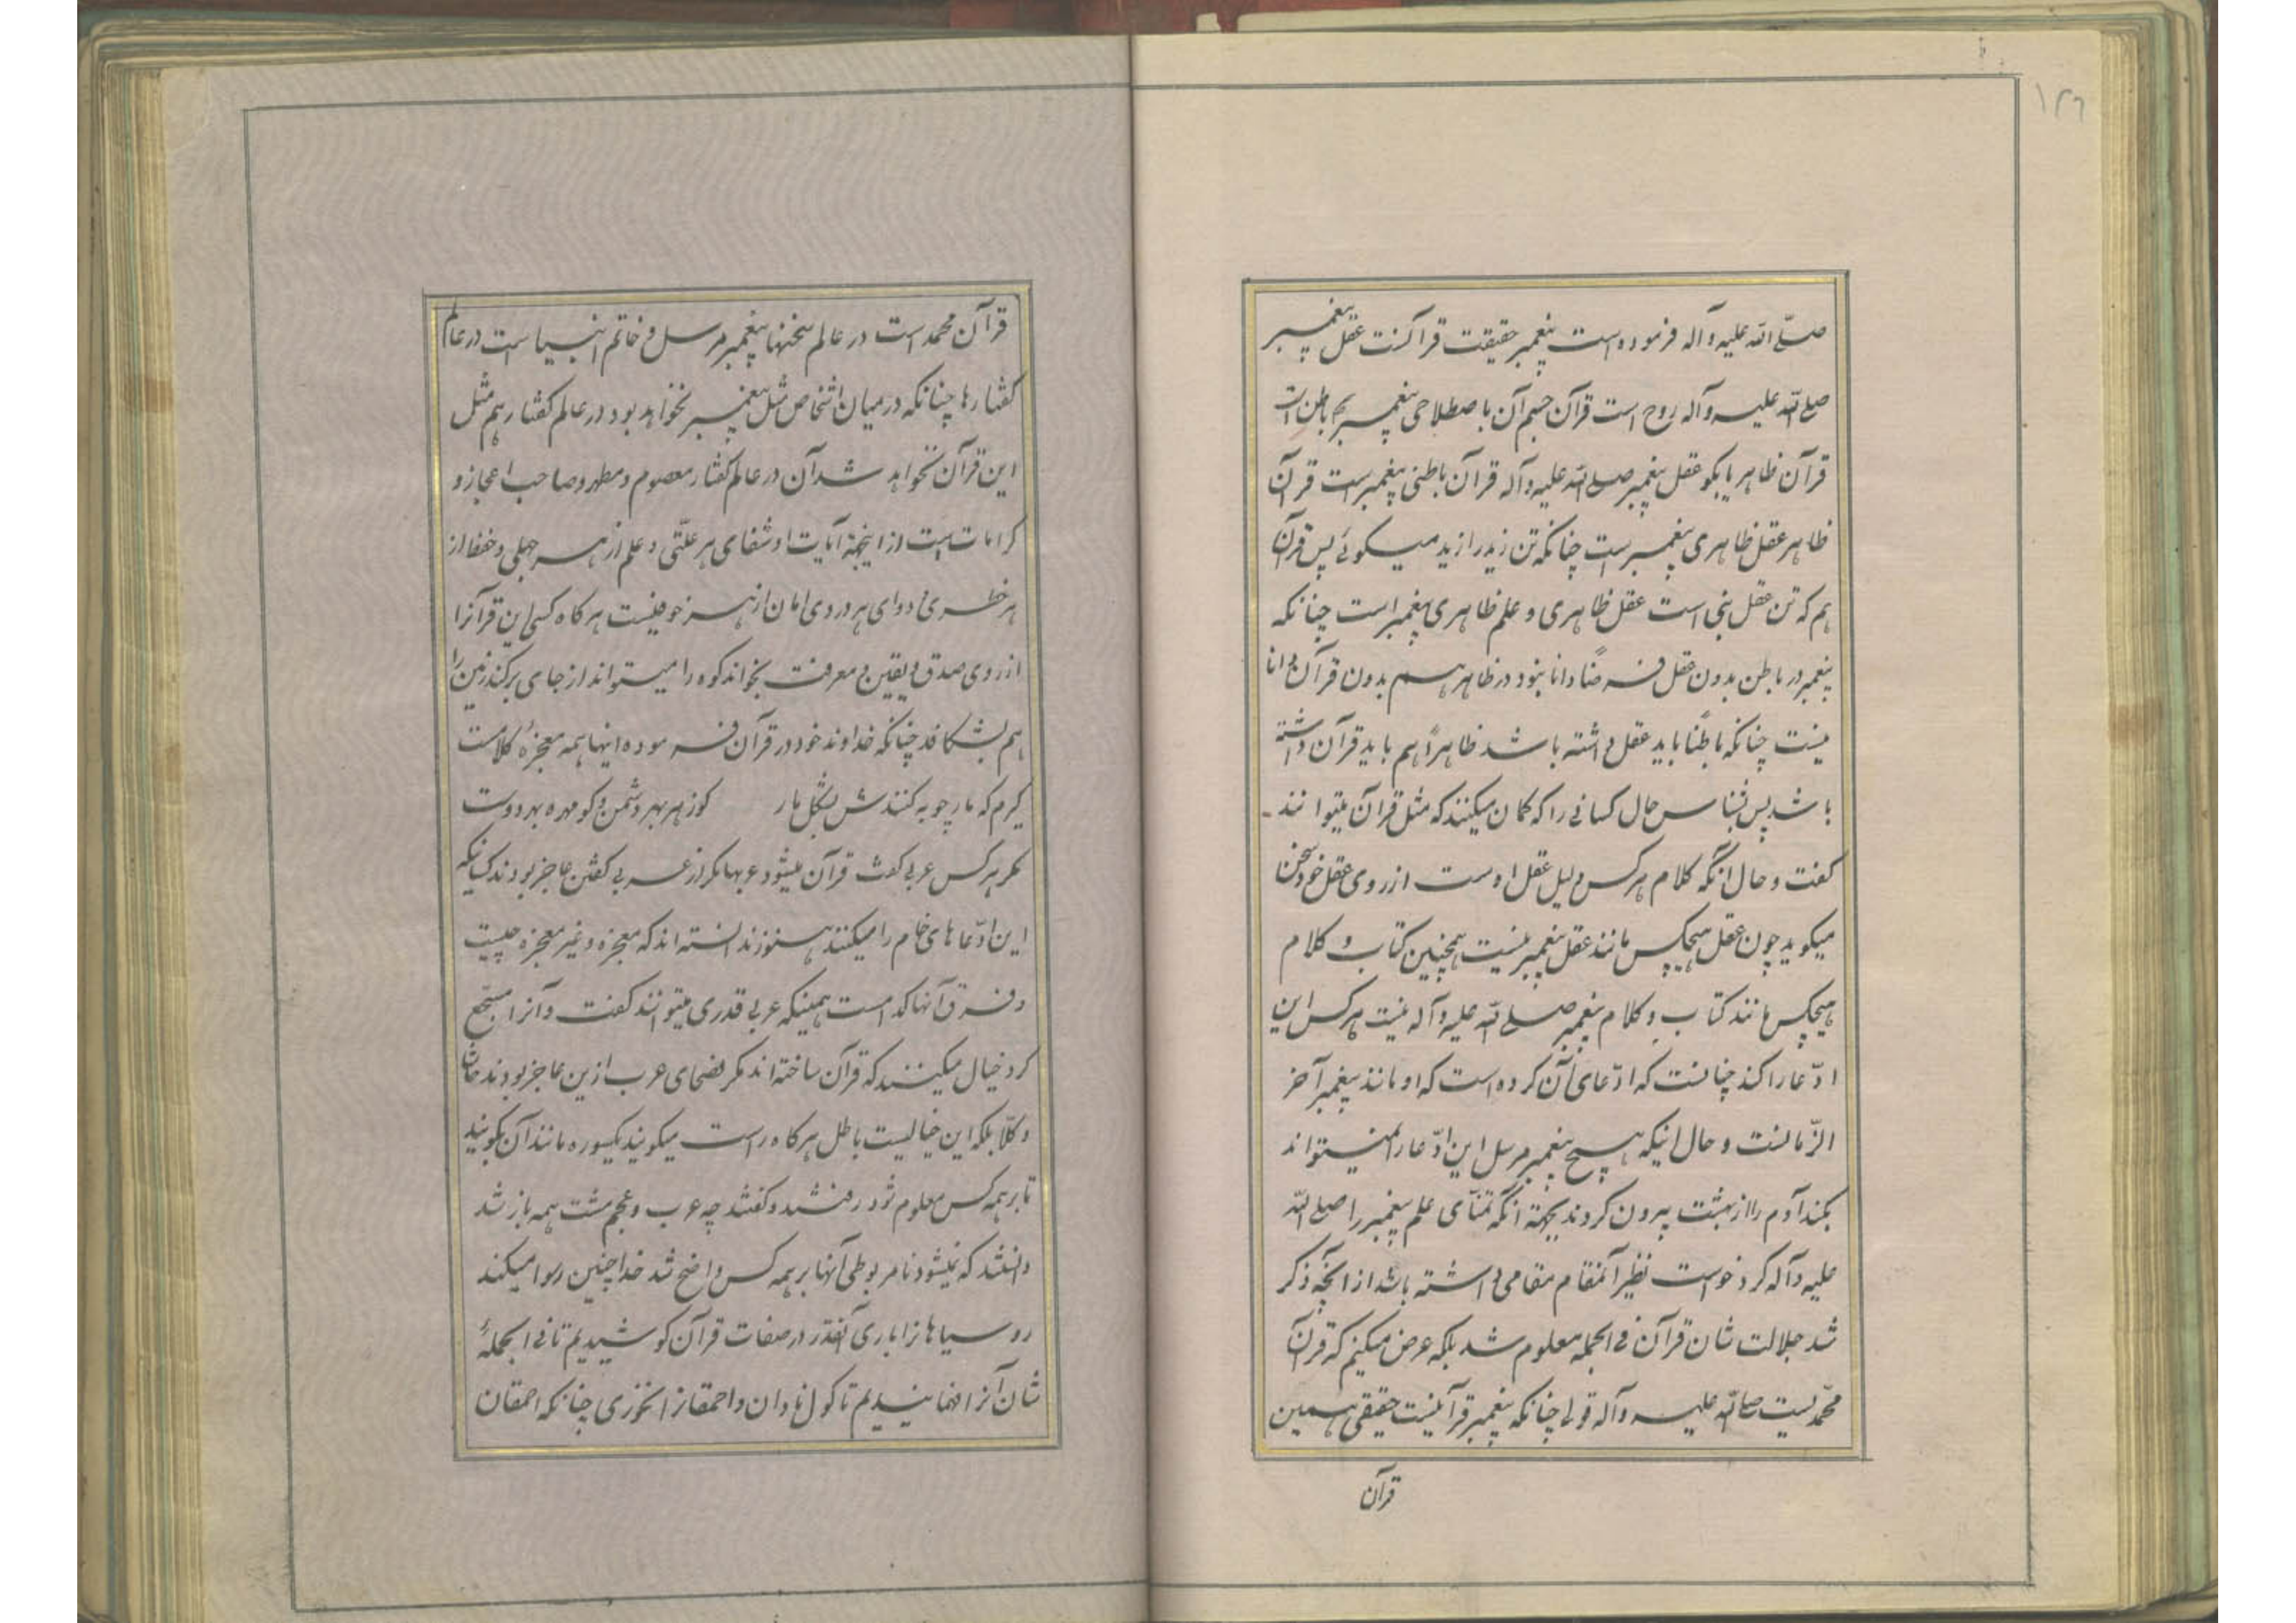 ۱۲۶
صلّی الله علیه وآله فرموده است پیغمبر حقیقت قرآنست عقل پیغمبر
صلی الله علیه وآله روح است قرآن جسم آن باصطلاحی پیغمبر باطن است
قرآن ظاهر یا بگو عقل پیغمبر صلی الله علیه وآله قرآن باطنی پیغمبر است قرآن
ظاهر عقل ظاهری پیغمبر است چنانکه تن زید را زید میگوئی پس قرآن
هم که تن عقل نبی است عقل ظاهری و علم ظاهری پیغمبر است چنانکه
پیغمبر در باطن بدون عقل فرضاً دانا نبود در ظاهر هم بدون قرآن دانا
نیست چنانکه باطناً باید عقل داشته باشد ظاهراً هم باید قرآن داشته
باشد پس بشناس حال کسانی را که کمان میکنند که مثل قرآن میتوانند
کفت و حال آنکه کلام هرکس دلیل عقل اوست از روی عقل خود سخن
میکوید چون عقل هیچکس مانند عقل پیغمبر نیست همچنین کتاب و کلام
هیچکس مانند کتاب و کلام پیغمبر صلی الله علیه وآله نیست هرکس این
ادّعا را کند چنانست که ادّعای آن کرده است که او مانند پیغمبر آخر
الزّمانست و حال انیکه هیچ پیغمبر مرسل این ادّعا را نمیتواند
بکند آدم را از بهشت بیرون کردند بجهة انکه تمنّای علم پیغمبر را صلی الله
علیه وآله کرد خواست نظیر آنمقام مقامی داشته باشد از آنچه ذکر
شد جلالت شان قرآن فی الجمله معلوم شد بلکه عرض میکنم که قرآن
محمّدیست صلی الله علیه وآله قولی چنانکه پیغمبر قرآنیست حقیقی همین
قرآن
قرآن محمد است در عالم سخنها پیغمبر مرسل و خاتم انبیا است در عالم
کفتارها چنانکه در میان اشخاص مثل پیغمبر نخواهد بود در عالم کفتار هم مثل
این قرآن نخواهد شد آن در عالم کفتار معصوم و مطهر و صاحب اعجاز و
کرامات است از اینجهة آیات او شفای هر علّتی و علم از هر جهلی و حفظ از
هر خطری و دوای هر دردی امان از هر خوفیست هرکاه کسی این قرآنرا
از روی صدق و یقین و معرفت بخواند کوه را میتواند از جای برکند زمین را
هم بشکافد چنانکه خداوند خود در قرآن فرموده اینها همه معجزهٔ کلامست
کیرم که مارچوبه کند تن بشکل مار کو زهر بهر دشمن و کو مهره بهر دوست
مکر هرکس عربی کفت قرآن میشود عربها مکر از عربی کفتن عاجز بودند کسانیکه
این ادّعاهای خام را میکنند هنوز ندانسته اند که معجزه و غیر معجزه چیست
و فرق آنها کدامست همینکه عربی قدری میتوانند کفت و آنرا مسجّع
کرد خیال میکنند که قرآن ساخته اند مکر فصحای عرب ازین عاجز بودند حاشا
و کلّا بلکه این خیالیست باطل هرکاه راست میکویند یکسوره مانند آن بکویند
تا بر همه کس معلوم شود رفتند و کفتند چه عرب و عجم مشت همه باز شد
دانستند که نمیشود نامربوطی آنها بر همه کس واضح شد خدا چنین رسوا میکند
روسیاهانرا باری آنقدر در صفات قرآن کوشیدیم تا فی الجملهٔ
شان آنرا فهمانیدیم تا کول نادان و احمقانرا نخوری چنانکه احمقان